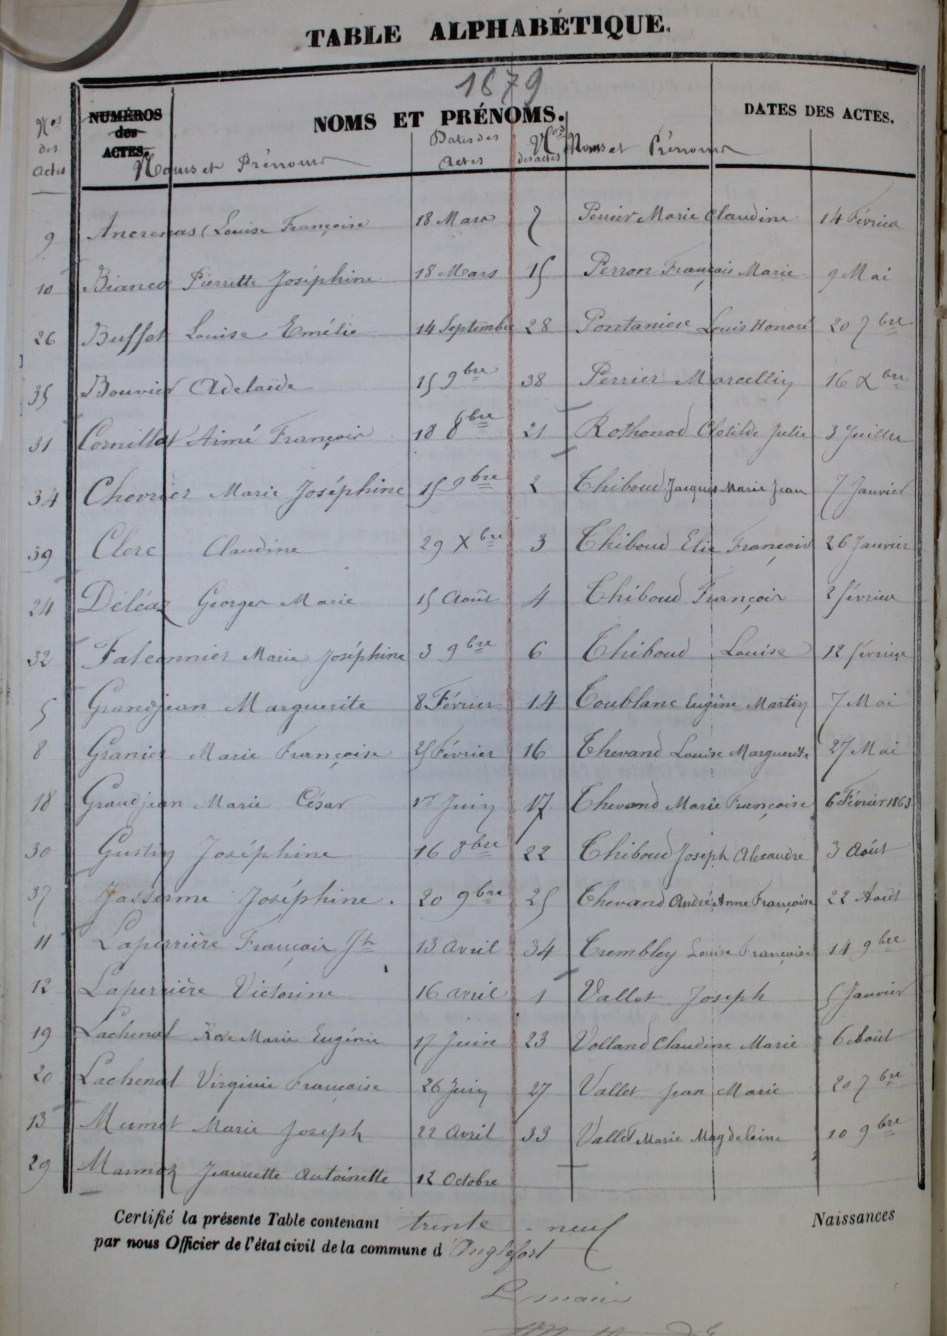 TABLE ALPHABÉTIQUE.
1879
NUMÉROS des ACTES.
NOMS ET PRÉNOMS.
DATES DES ACTES.
Nos des Actes
Noms et Prénoms
Dates des Actes
Nos des actes
Noms et Prénoms
9 Ancrenas Louise Françoise 18 Mars 7 Perrier Marie Claudine 14 Février
10 Bianco Pierrette Joséphine 18 Mars 15 Perron François Marie 9 Mai
26 Buffet Louise Emélie 14 Septembre 28 Pontanier Louis Honoré 20 7bre
35 Bouvier Adelaïde 15 9bre 38 Perrier Marcellin 16 Xbre
31 Cornillat Aimé François 18 8bre 21 Rothonod Clotilde Julie 3 Juillet
34 Chevrier Marie Joséphine 15 9bre 2 Thiboud Jacques Marie Jean 7 Janvier
39 Clerc Claudine 29 Xbre 3 Thiboud Elie François 26 Janvier
24 Déléaz Georges Marie 15 Août 4 Thiboud François 2 février
32 Falconnier Marie Joséphine 3 9bre 6 Thiboud Louise 12 février
5 Grandjean Marguerite 8 Février 14 Toublanc Eugène Martin 7 Mai
8 Granier Marie Françoise 25 Février 16 Thevand Louise Marguerite 27 Mai
18 Grandjean Marie César 1er Juin 17 Thevand Marie Françoise 6 Février 1863
30 Gustin Joséphine 16 8bre 22 Thiboud Joseph Alexandre 3 Août
37 Jasserme Joséphine. 20 9bre 25 Thevand André Anne Françoise 22 Août
11 Laperrière François Jh 13 avril 34 Trembley Louise Françoise 14 9bre
12 Laperrière Victorine 16 avril 1 Vallet Joseph 5 Janvier
19 Lachenal Rose Marie Eugénie 17 Juin 23 Volland Claudine Marie 6 Août
20 Lachenal Virginie Françoise 26 Juin 27 Vallet Jean Marie 20 7bre
13 Mumet Marie Joseph 22 avril 33 Vallet Marie Magdeleine 10 9bre
29 Marmoz Jeannette Antoinette 12 Octobre
Certifié la présente Table contenant trente-neuf Naissances
par nous Officier de l'état civil de la commune d'Anglefort
Le maire